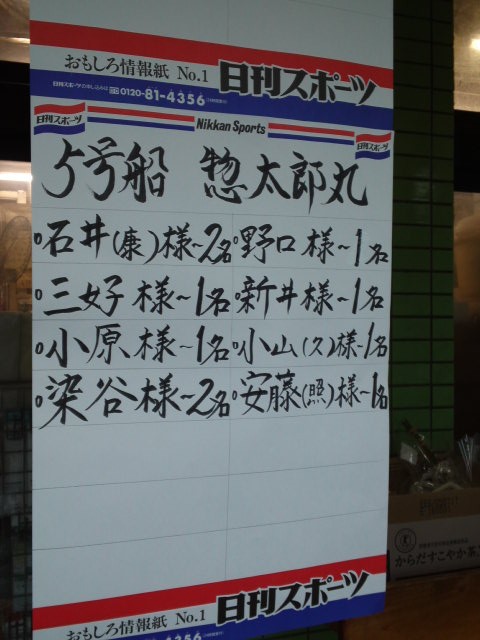 おもしろ情報紙 No.1 日刊スポーツ
0120-81-4356
日刊スポーツ Nikkan Sports 日刊スポーツ
5号船 惣太郎丸
石井(康)様~2名 野口様~1名
三好様~1名 新井様~1名
小原様~1名 小山(久)様~1名
染谷様~2名 安藤(照)様~1名
からだすこやか茶
おもしろ情報紙 No.1 日刊スポーツ
4356